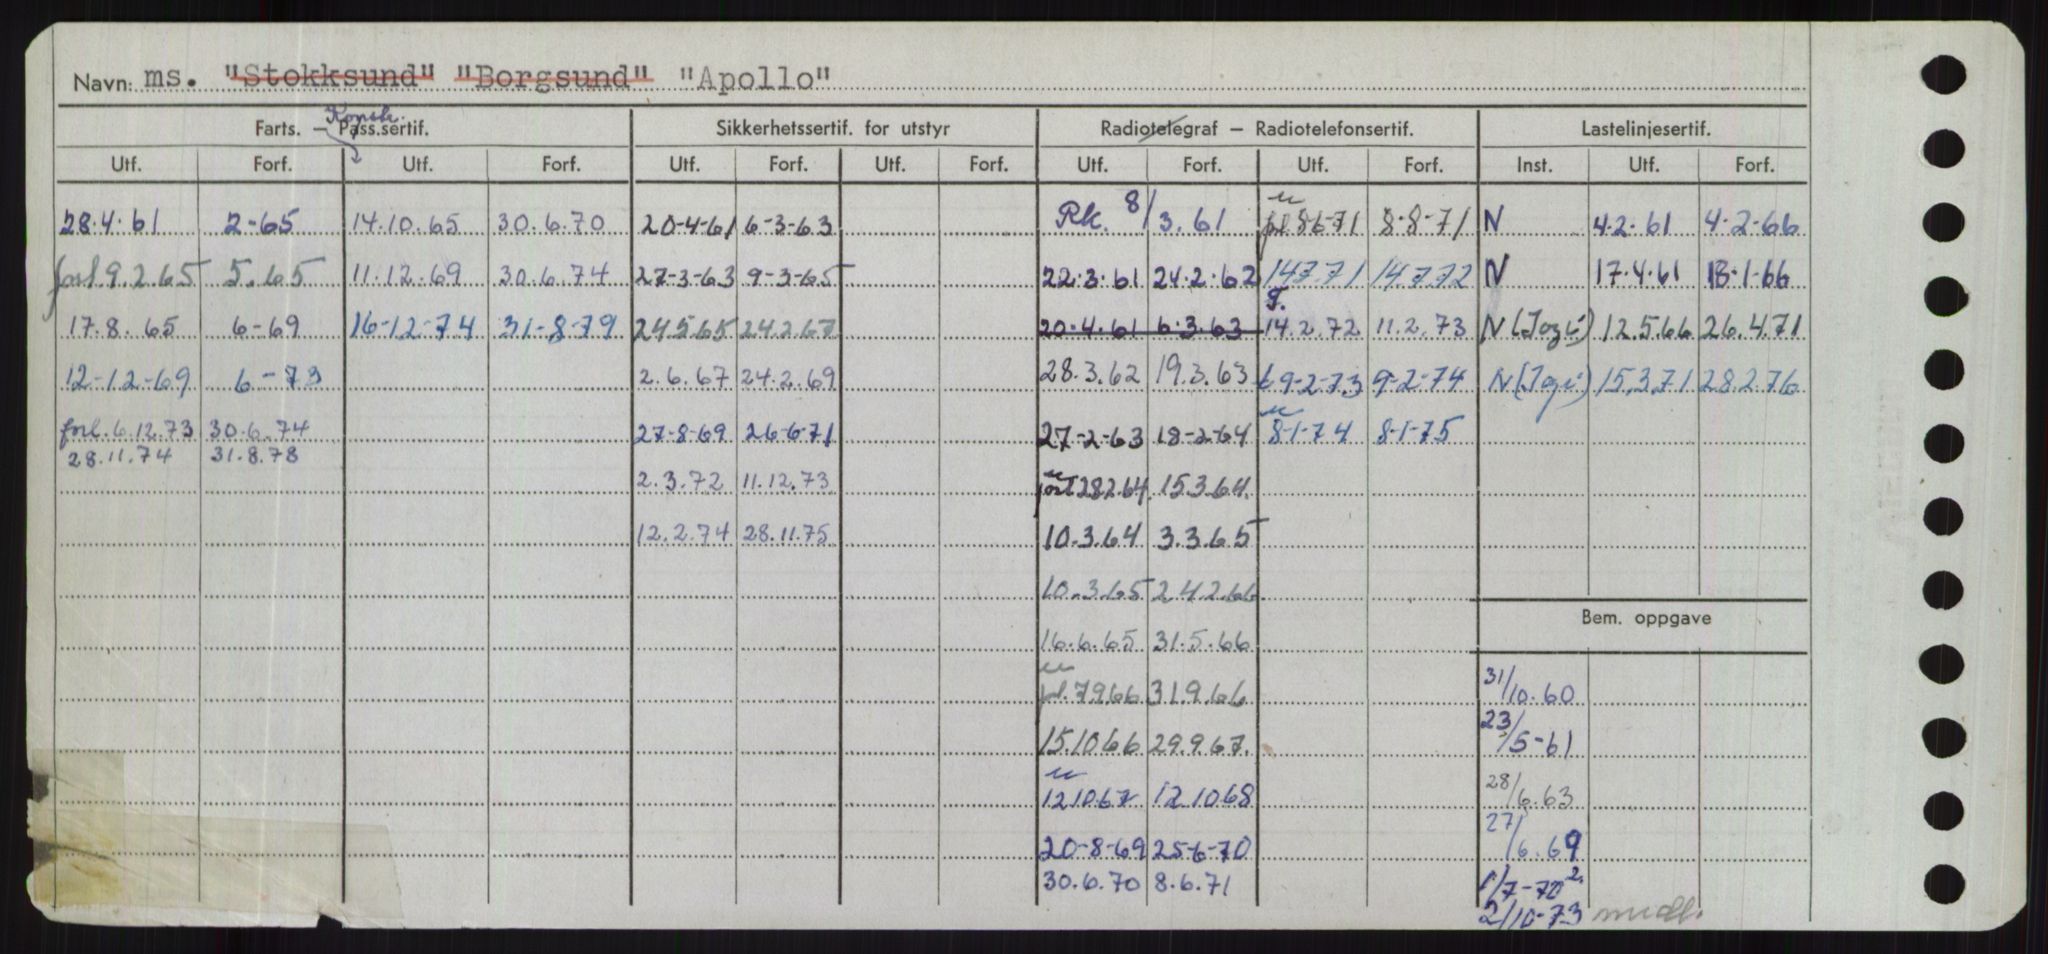 Navn: ms. "Stokksund" "Borgsund" "Apollo"
Konstr.
Farts. – Pass.sertif. Sikkerhetssertif. for utstyr Radiotelegraf – Radiotelefonsertif. Lastelinjesertif.
Utf. Forf. Utf. Forf. Utf. Forf. Utf. Forf. Utf. Forf. Utf. Forf. Inst. Utf. Forf.
28.4.61 2-65 14.10.65 30.6.70 20-4-61 6-3-63 Rk. 8/3.61 8-6-71 8-8-71 N 4.2.61 4-2-66
forl 9.2.65 5.65 11.12.69 30.6.74 27-3-63 9-3-65 22.3.61 24.2.62 14.7.71 14.7.72 N 17.4.61 13-1-66
17.8.65 6-69 16-12-74 31-8-79 24.5.65 24.2.67 20.4.61 6.3.63 F. 14.2.72 11.2.73 N 12.5.66 26.4.71
12-12-69 6-73 2.6.67 24.2.69 28.3.62 19.3.63 9-2-73 9-2-74 N 15.3.71 28.2.76
forl. 6.12.73 30.6.74 27-8-69 26-6-71 27-2-63 18-2-64 8-1-74 8-1-75
28.11.74 31.8.78
2.3.72 11.12.73 forl 28.2.64 15.3.64
12.2.74 28.11.75 10.3.64 3.3.65
10.3.65 24.2.66
16.6.65 31.5.66
Bem. oppgave
fl. 7.9.66 31.9.66 31/10.60
15.10.66 29.9.67. 23/5-61
12.10.67 12.10.68 28/6.63
20-8-69 25-6-70 27/6.69
30.6.70 8.6.71 1/7-70
2/10-73 midl.